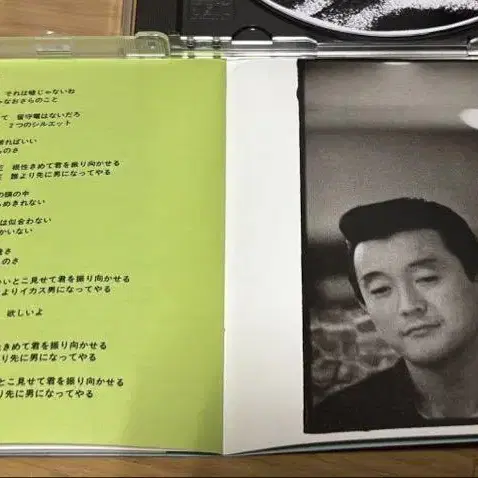 それは嘘じゃないね
なおさらのこと
て　留守電はないだろ
２つのシルエット
ればいい
のさ
根性きめて君を振り向かせる
誰より先に男になってやる
の頭の中
めきれない
は似合わない
かいない
さ
のさ
いとこ見せて君を振り向かせる
よりイカス男になってやる
欲しいよ
きめて君を振り向かせる
り先に男になってやる
とこ見せて君を振り向かせる
り先に男になってやる